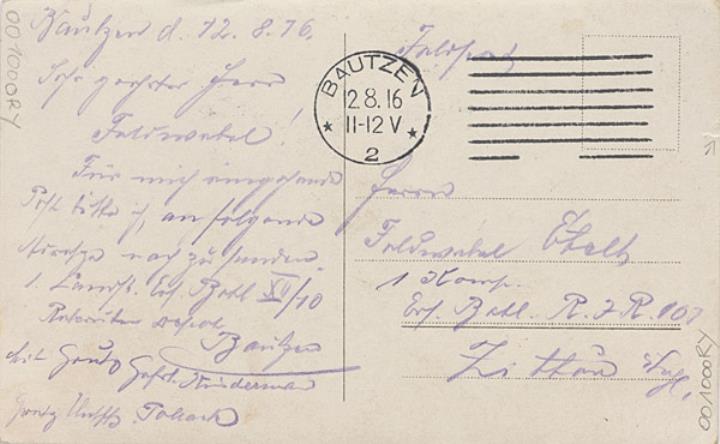 Bautzen d. 12.8.16.
Sehr geehrter Herr
Feldwebel!
Für mich eingehende
Post bitte ich, an folgende
Adresse nach zu senden.
1. Landst. Ers. Batl XII/10
Rekruten Depot
Bautzen
Mit Gruß Gefr.
Feldpost
BAUTZEN
12.8.16
11-12 V
2
Herrn
Feldwebel
1 Komp.
Ers. Batl. R.I.R. 107
Zittau
001000RY
001000RY